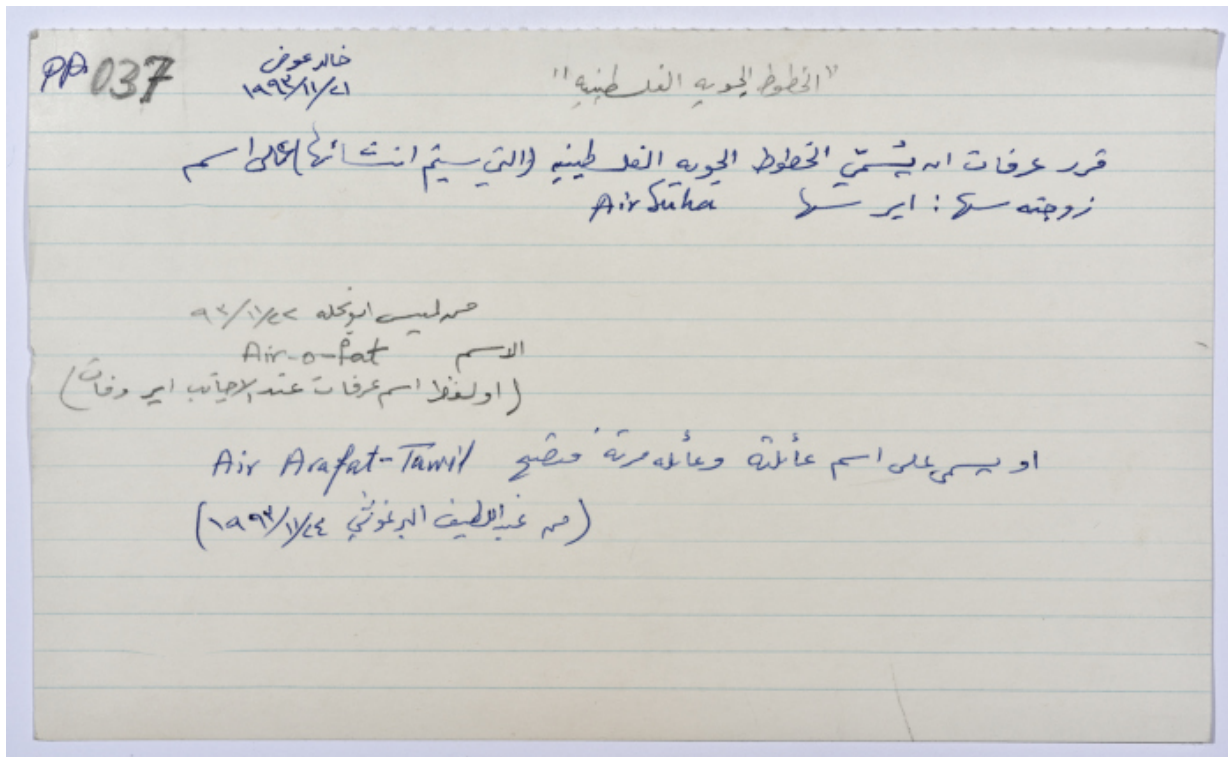 PA. 037
خالد عوض
١٩٩٣/١١/٢١
"الخطوط الجويه الفلسطينيه"
قرر عرفات ان يُسّمي الخطوط الجويه الفلسطينيه (التي سيتم انشائها) على اسم
زوجته سها : اير سها Air Suha
من لميس ابو نحله ٩٣/١١/٢٢
الاسم Air-o-fat
(او لفظ اسم عرفات عند الاجانب اير وفات)
او يسمى على اسم عائلته وعائله مرته فتصبح Air Arafat-Tawil
(من عبد اللطيف البرغوثي ١٩٩٣/١١/٢٤)